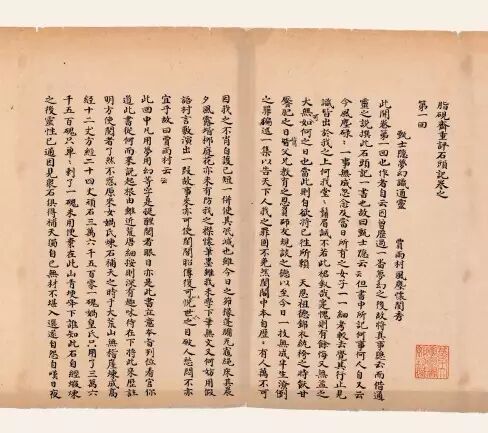 脂硯齋重評石頭記卷之
第一回
甄士隱夢幻識通靈 賈雨村風塵懷閨秀
此開卷第一回也作者自云因曾歷過一番夢幻之後故將真事隱去而借通
靈之說撰此石頭記一書也故曰甄士隱云云但書中所記何事何人自又云
今風塵碌碌一事無成忽念及當日所有之女子一一細考較去覺其行止見
識皆出於我之上何我堂堂鬚眉誠不若此裙釵哉實愧則有餘悔又無益之
大無如何之日也當此則自欲將已往所賴 天恩祖德錦衣紈袴之時飫甘
饜肥之日背父兄教育之恩負師友規談之德以至今日一技無成半生潦倒
之罪編述一集以告天下人我之罪固不免然閨閣中本自歷歷有人萬不可
因我之不肖自護己短一併使其泯滅也雖今日之茆椽蓬牖瓦灶繩床其晨
夕風露堦柳庭花亦未有防我之襟懷筆墨雖我未學下筆無文又何妨用假
語村言敷演出一段故事來亦可使閨閣昭傳復可悅世之目破人愁悶不亦
宜乎故曰賈雨村云云
此回中凡用夢用幻等字是提醒閱者眼目亦是此書立意本旨列位看官你
道此書從何而來說起根由雖近荒唐細按則深有趣味待在下將此來歷註
明方使閱者了然不惑原來女媧氏煉石補天之時于大荒山無稽崖煉成高
經十二丈方經二十四丈頑石三萬六千五百零一塊媧皇氏只用了三萬六
千五百塊只单单剩了一塊未用便棄在此山青埂峰下誰知此石自經煆煉
之後靈性已通因見眾石俱得補天獨自己無材不堪入選遂自怨自嘆日夜